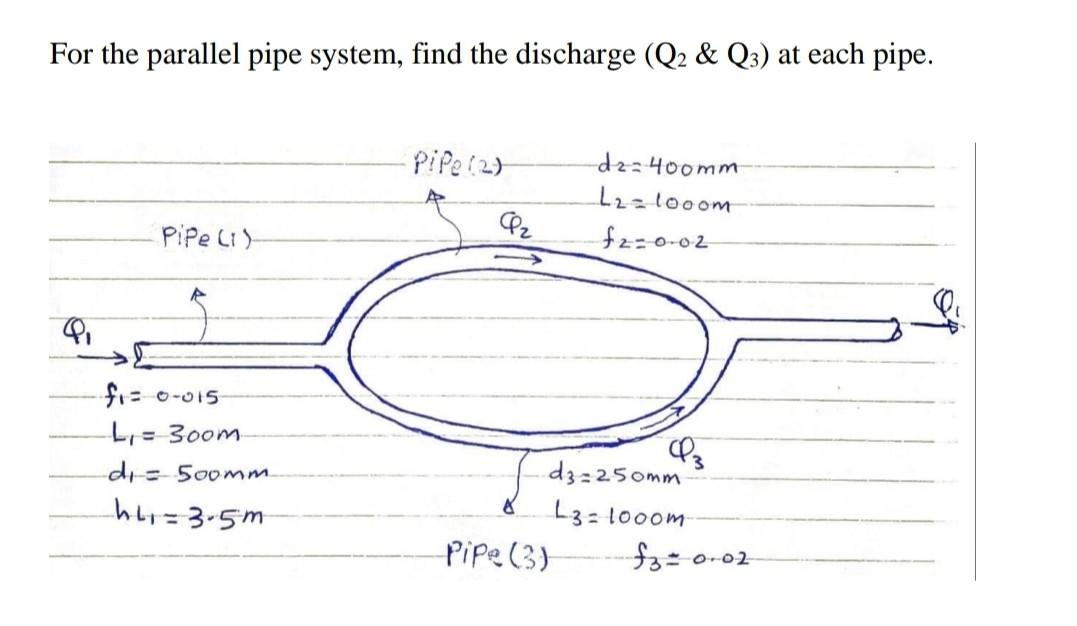 For the parallel pipe system, find the discharge (Q2 & Q3) at each pipe.
Pipe (2)
d2=400mm
L2=1000m
f2=0.02
Q2
Pipe (1)
Q1
Q1
f1= 0.015
L1= 300m
d1= 500mm
hL1=3.5m
Q3
d3=250mm
L3=1000m
f3=0.02
Pipe (3)